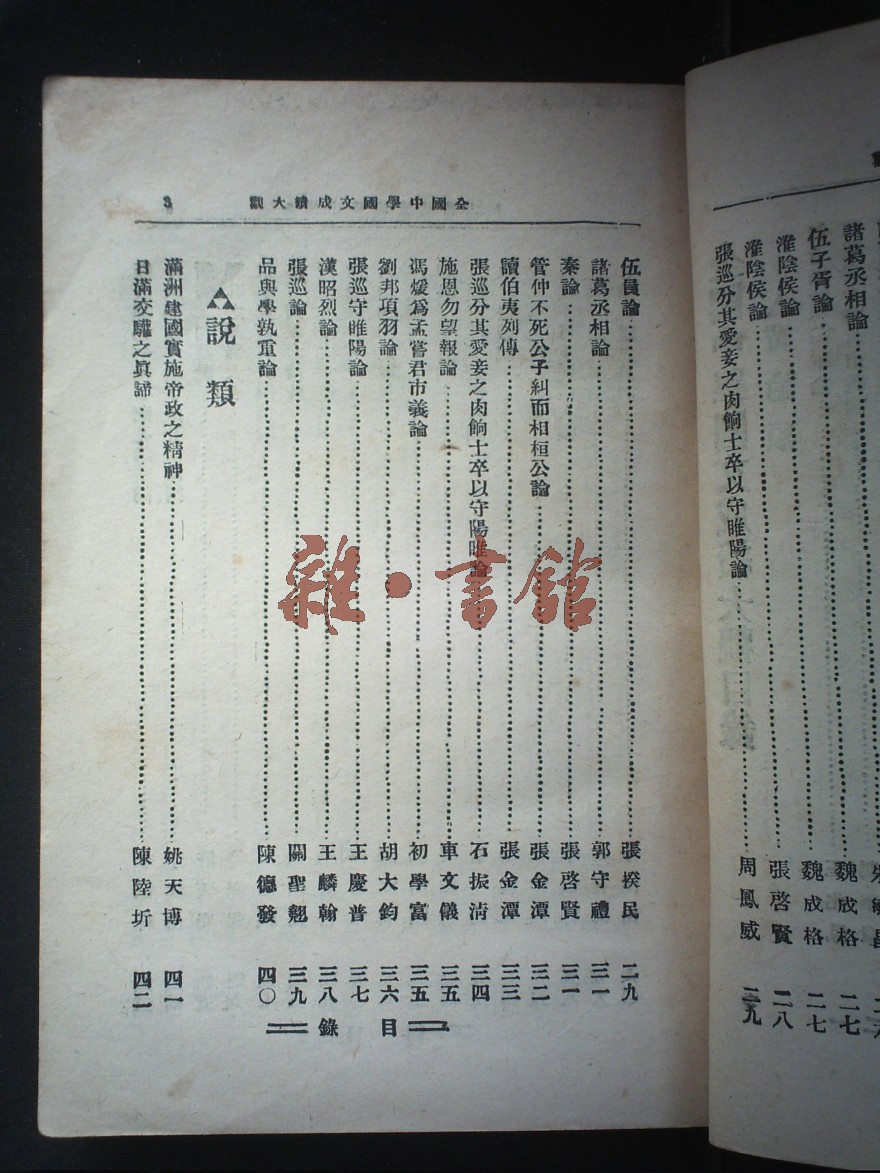 諸葛丞相論
伍子胥論 魏成格 二七
淮陰侯論 魏成格 二七
淮陰侯論 張啓賢 二八
張巡分其愛妾之肉餉士卒以守睢陽論 周鳳威 二九
全國中學國文成績大觀 3
伍員論 張揆民 二九
諸葛丞相論 郭守禮 三一
秦論 張啓賢 三一
管仲不死公子糾而相桓公論 張金潭 三二
讀伯夷列傳 張金潭 三三
張巡分其愛妾之肉餉士卒以守陽睢論 石振清 三四
施恩勿望報論 車文儀 三五
馮煖爲孟嘗君市義論 初學富 三五
劉邦項羽論 胡大鈞 三六
張巡守睢陽論 王慶普 三七
漢昭烈論 王麟翰 三八
張巡論 關聖翹 三九
品與學孰重論 陳德發 四〇
說類
滿洲建國實施帝政之精神 姚天博 四一
日滿交驩之眞諦 陳陸圻 四二
目錄
雜·書館